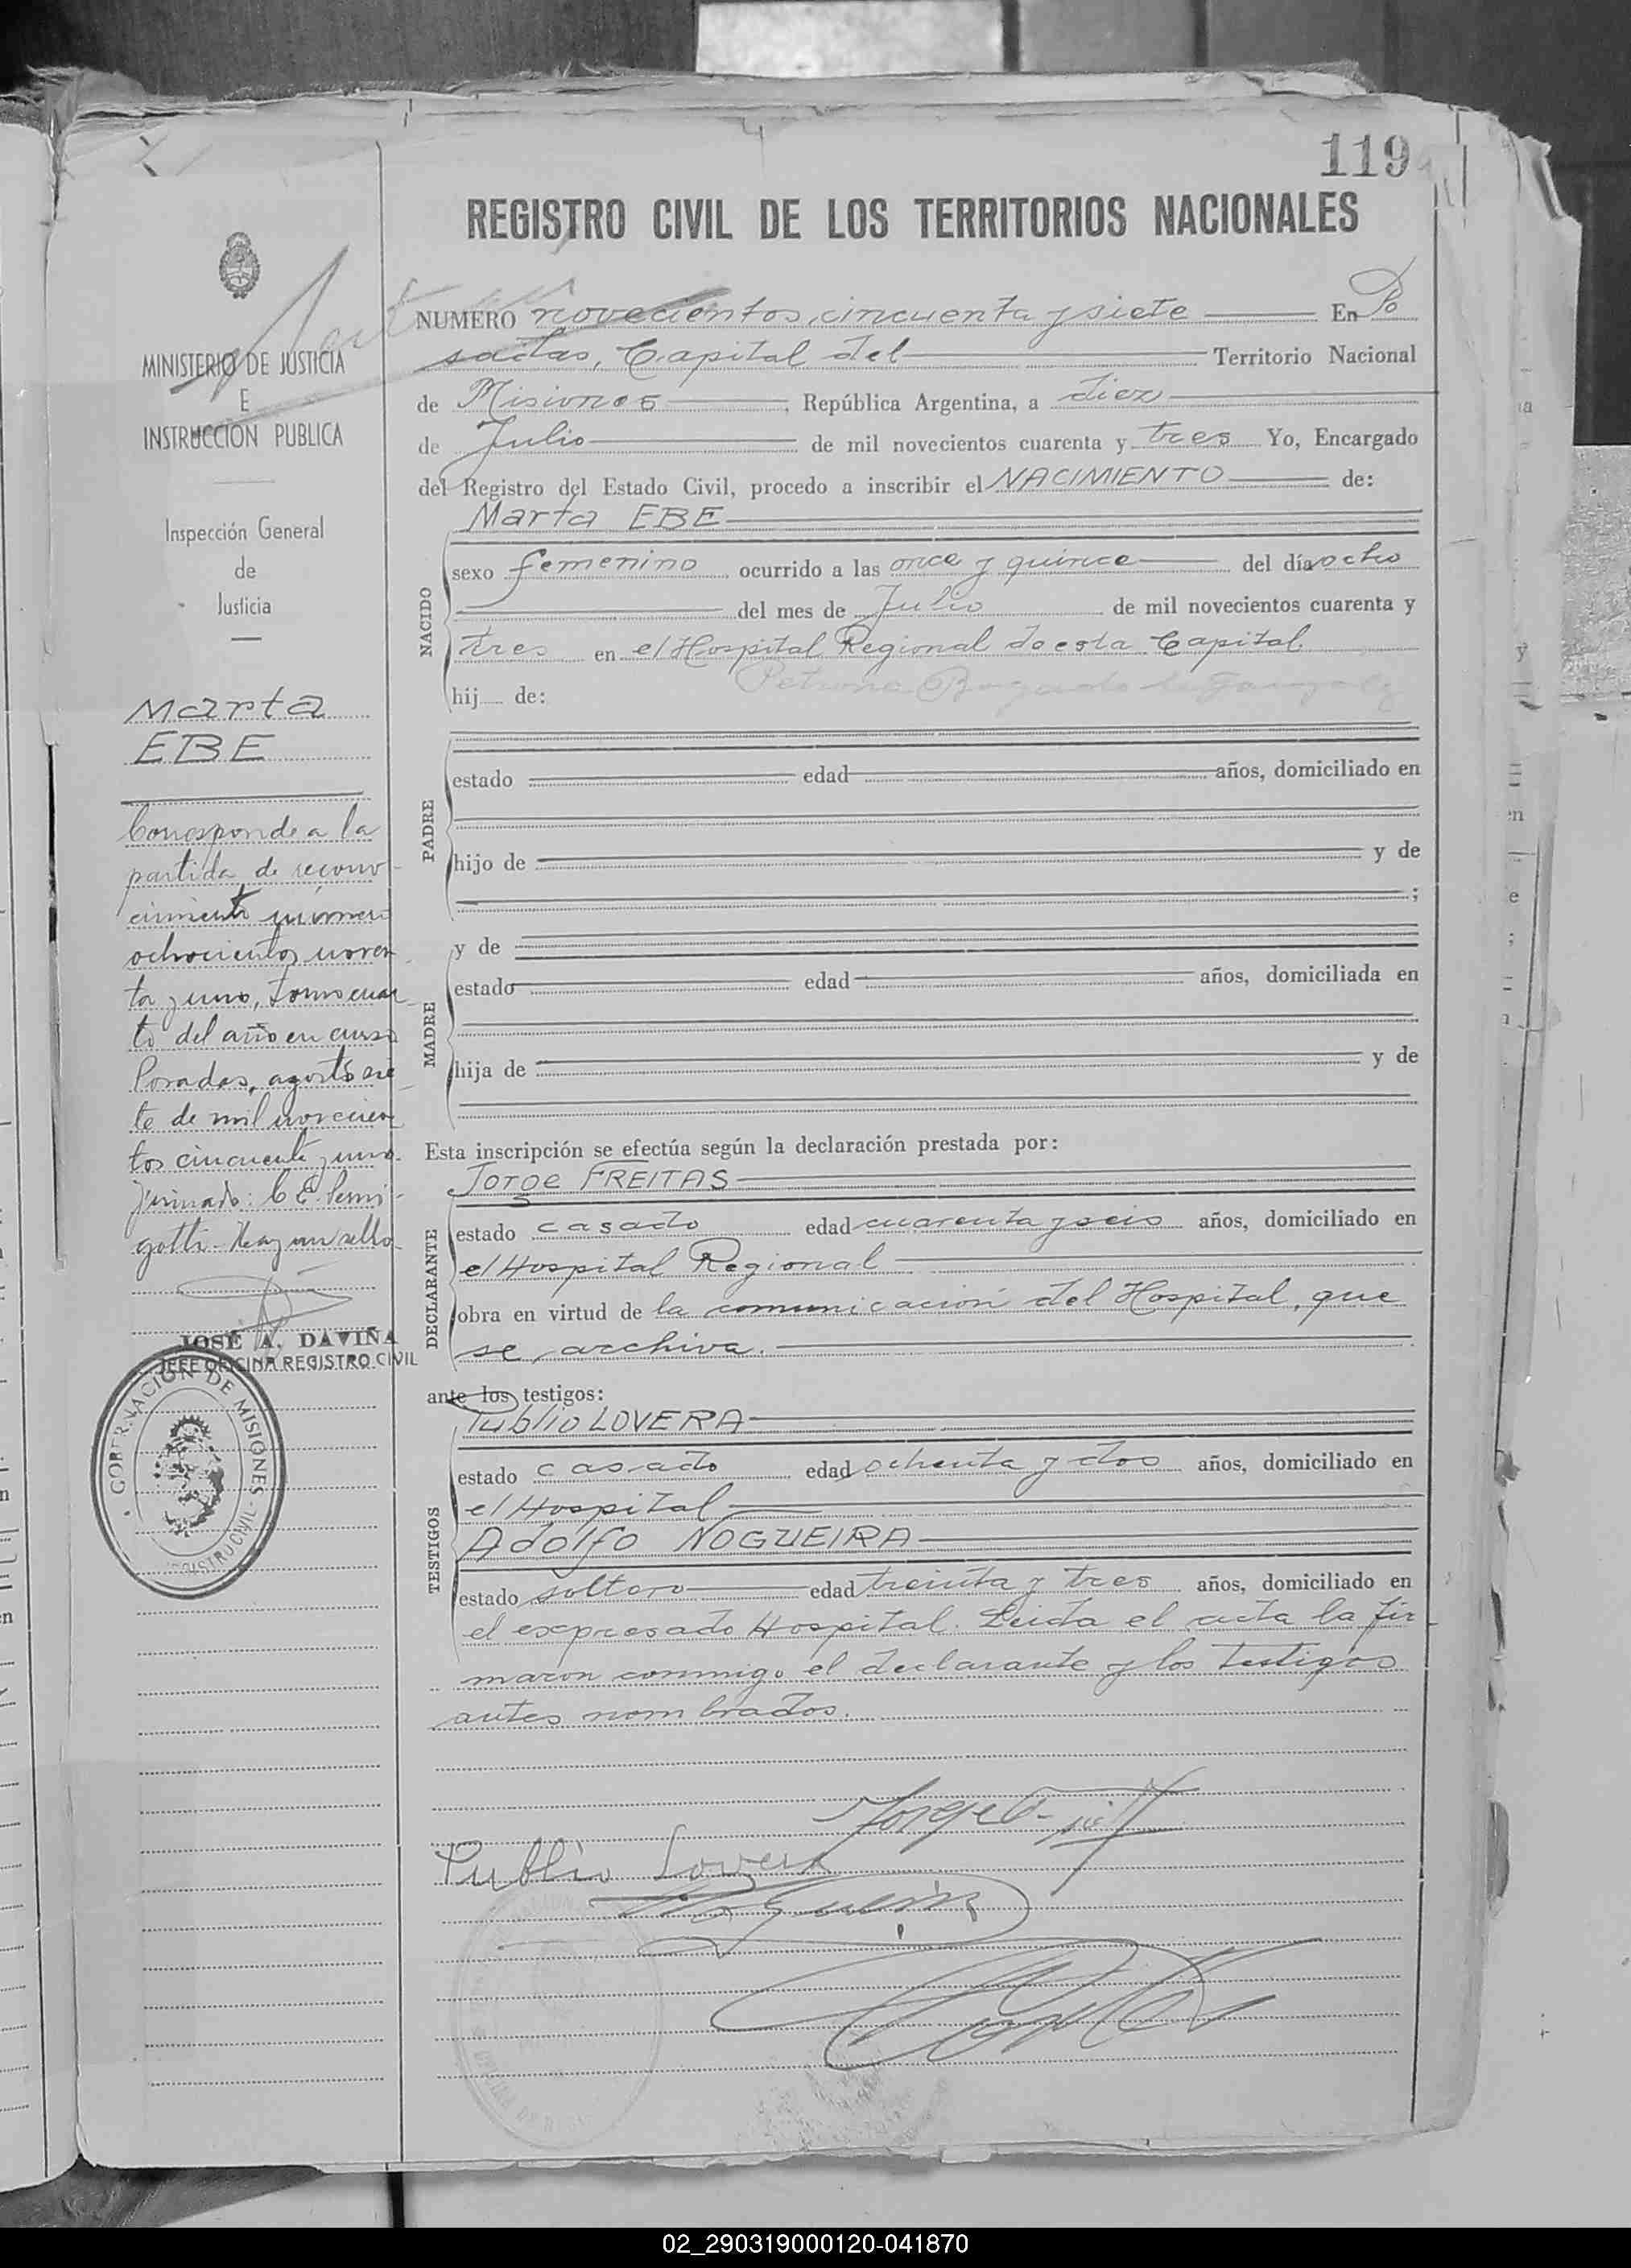 119
REGISTRO CIVIL DE LOS TERRITORIOS NACIONALES
NUMERO novecientos cincuenta y siete En Po
sadas, Capital del Territorio Nacional
de Misiones, República Argentina, a diez
de Julio de mil novecientos cuarenta y tres Yo, Encargado
del Registro del Estado Civil, procedo a inscribir el NACIMIENTO de:
Marta EBE
NACIDO
sexo femenino ocurrido a las once y quince del día ocho
del mes de Julio de mil novecientos cuarenta y
tres en el Hospital Regional de esta Capital.
Petrona Bogado de
hij de:
PADRE
estado edad años, domiciliado en
hijo de y de
;
MADRE
y de
estado edad años, domiciliada en
hija de y de
Esta inscripción se efectúa según la declaración prestada por:
Jorge FREITAS
DECLARANTE
estado casado edad cuarenta y seis años, domiciliado en
el Hospital Regional
obra en virtud de la comunicación del Hospital, que
se archiva.
ante los testigos:
Publio LOVERA
TESTIGOS
estado casado edad ochenta y dos años, domiciliado en
el Hospital
Adolfo NOGUEIRA
estado soltero edad treinta y tres años, domiciliado en
el expresado Hospital. Leida el acta la fir
maron conmigo el declarante y los testigos
antes nombrados.
Publio Lovera
MINISTERIO DE JUSTICIA
E
INSTRUCCIÓN PUBLICA
Inspección General
de
Justicia
Marta
EBE
Corresponde a la
partida de recono
cimiento número
ochocientos noven
ta y uno, tomo cuar
to del año en curso
Posadas, agosto sie
te de mil novecien
tos cincuenta y uno.
firmado: C. E.
Hay un sello
JOSÉ A. DAVIÑA
JEFE OFICINA REGISTRO CIVIL
GOBERNACION DE MISIONES
REGISTRO CIVIL
02_290319000120-041870